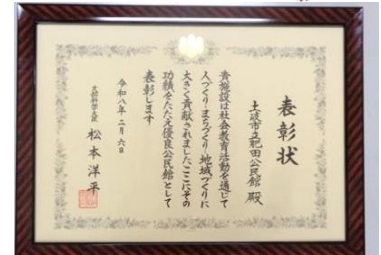 表彰状
土岐市立肥田公民館 殿
貴施設は社会教育活動を通じて
人づくり・まちづくり・地域づくりに
大きく貢献されましたここにその
功績をたたえ優良公民館として
表彰します
令和八年二月六日
文部科学大臣 松本洋平